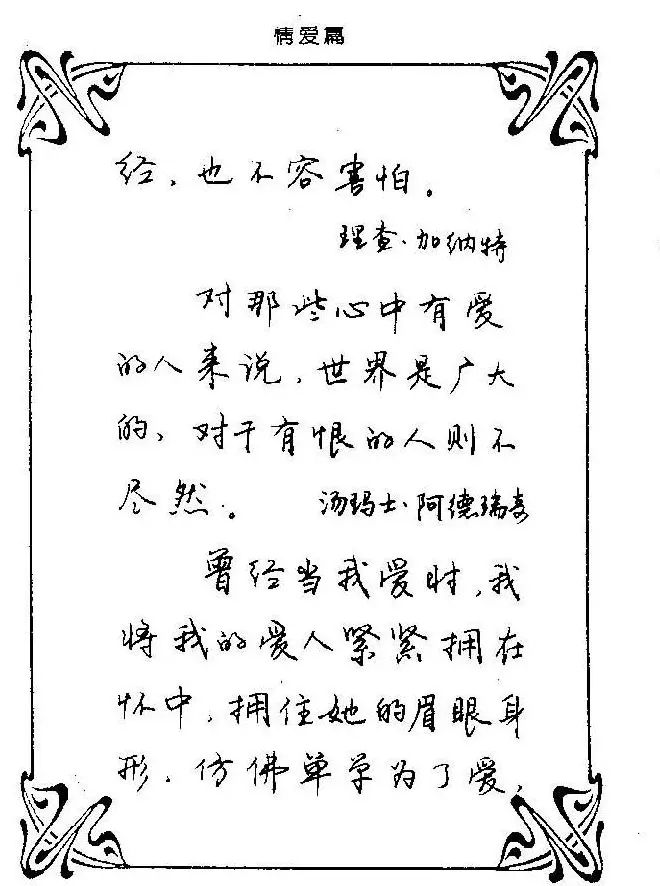 情爱篇
经，也不容害怕。
理查·加纳特
对那些心中有爱
的人来说，世界是广大
的，对于有恨的人则不
尽然。 汤玛士·阿德瑞奇
曾经当我爱时，我
将我的爱人紧紧拥在
怀中，拥住她的眉眼身
形，仿佛单单为了爱，